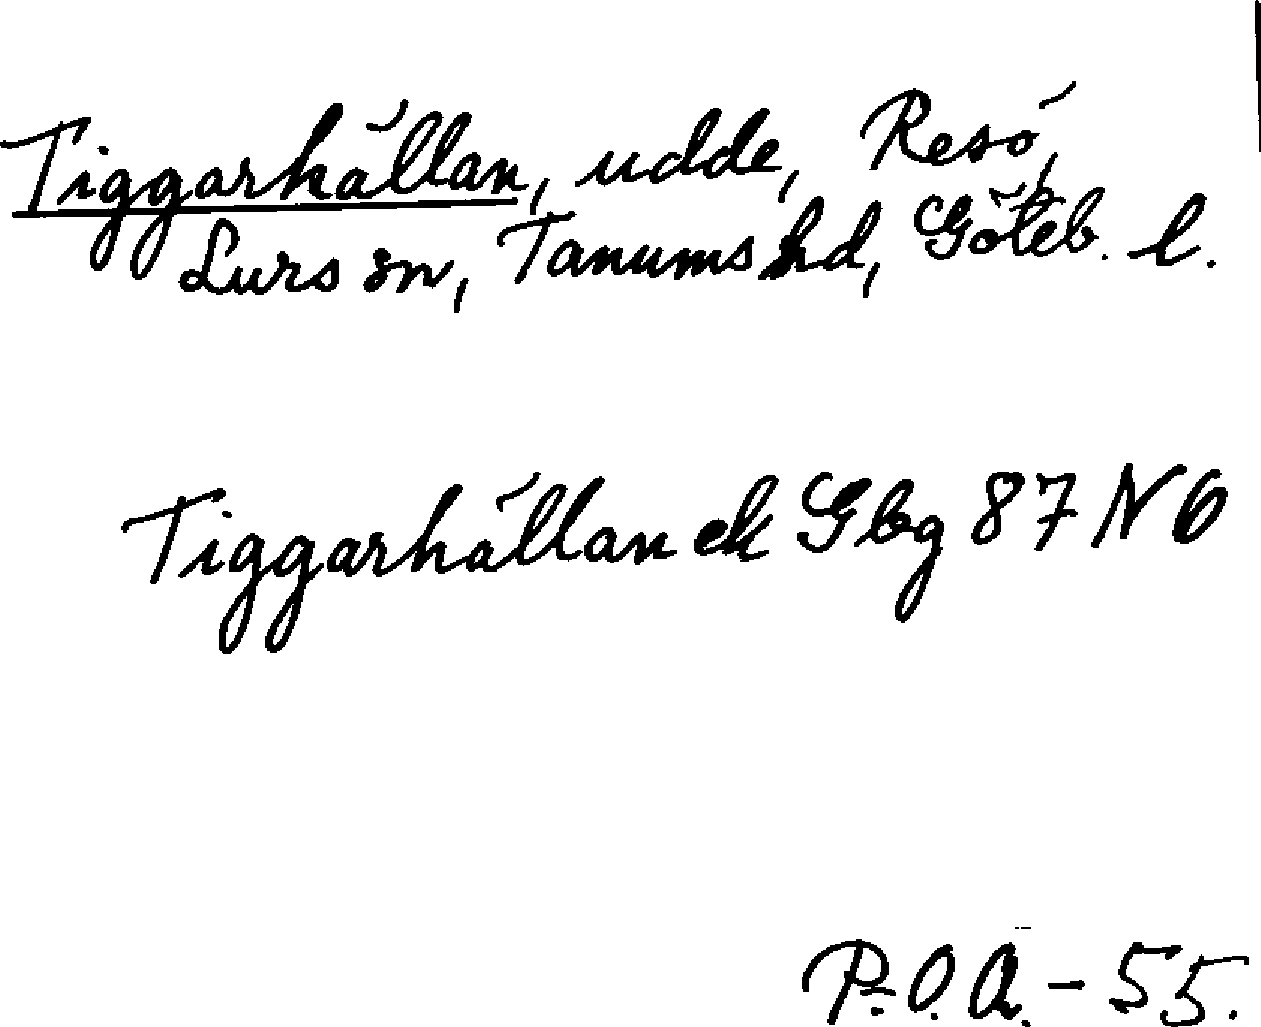 Tiggarhällan, udde, Resö,
Lurs sn, Tanums hd, Göteb. l.
Tiggarhällan ek Gbg 87 NO
P.O.A. - 55.